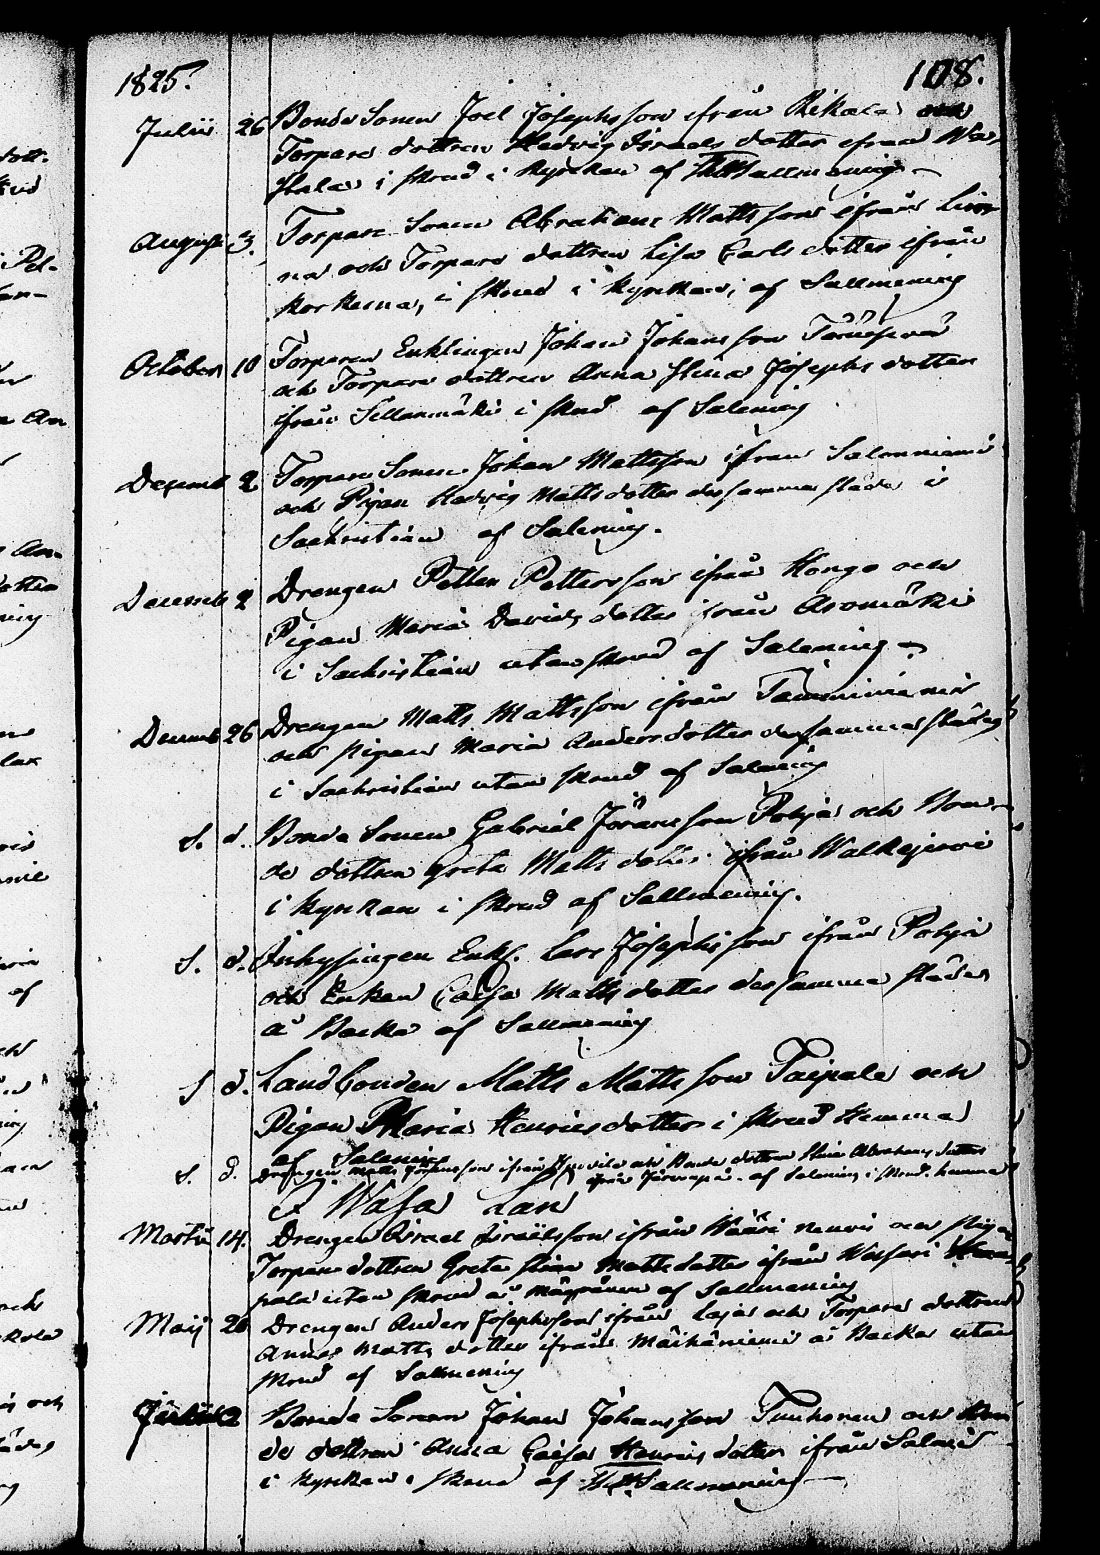 1825.
108.
Julii 26 Bonde Sonen Joel Josephsson ifrån Rikala och
Torpare dottren Hedvig Israels dotter ifrån
i skrud i Kyrckan af Sallmening
Augusti 3. Torpare Sonen Abraham Mattsson ifrån Lin
na och Torpare dottren Lisa Carls dotter ifrån
Korkema, i skrud i kyrckan, af Sallmening
October 10 Torparen Enklingen Johan Johansson
och Torpare dottren Anna Stina Josephs dotter
ifrån Sillanmäki i skrud af Salening
Decemb 2 Torpare Sonen Johan Mattsson ifrån Salonniemi
och Pigan Hedvig Matts dotter dessamma städes i
Sachristian af Salening.
Decemb 2 Drengen Petter Pettersson ifrån Kongo och
Pigan Maria Davids dotter ifrån Aromäki
i Sachristian utan skrud af Salening
Decemb 26 Drengen Matts Mattsson ifrån Tamminiemi
och Pigan Maria Anders dotter dessamma städes
i Sachristian utan skrud af Salening
s. d. Bonde Sonen Gabriel Göransson Pohja och Bon-
de dottren Greta Matts dotter ifrån Walkejervi
i kyrckan i skrud af Sallmening.
s. d. Inhysingen Enkl. Lars Josephsson ifrån Pohja
och Enkan Caisa Matts dotter dessamma städes
å Backa af Sallmening
s d. Landbonden Matts Mattsson Taipale och
Pigan Maria Henrics dotter i skrud hemma
af Salening
s. d. Drengen Matts Johansson ifrån och Bonde dottren Stina Abrahams dotter
ifrån Järvenpä. af Salening i skrud. hemma
I Wasa Län
Martii 14. Drengen Israel Israelsson ifrån och Pigan
Torpare dottren Greta Stina Matts dotter ifrån
pala utan skrud å af Sallmening
Maij 26 Drengen Anders Josephsson ifrån Laja och Torpare dottren
Anna Matts dotter ifrån Mäihäniemi å Backa utan
skrud af Sallmening
2 Bonde Sonen Johan Johansson Tunkonen och Bon
de dottren Anna Caisa Henrics dotter ifrån Salmi
i kyrckan i skrud af Sallmening